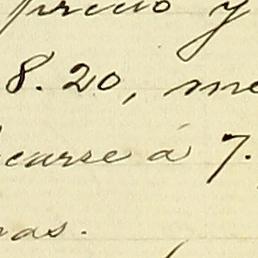 precio y
8.20, me
carse á 7.
as.